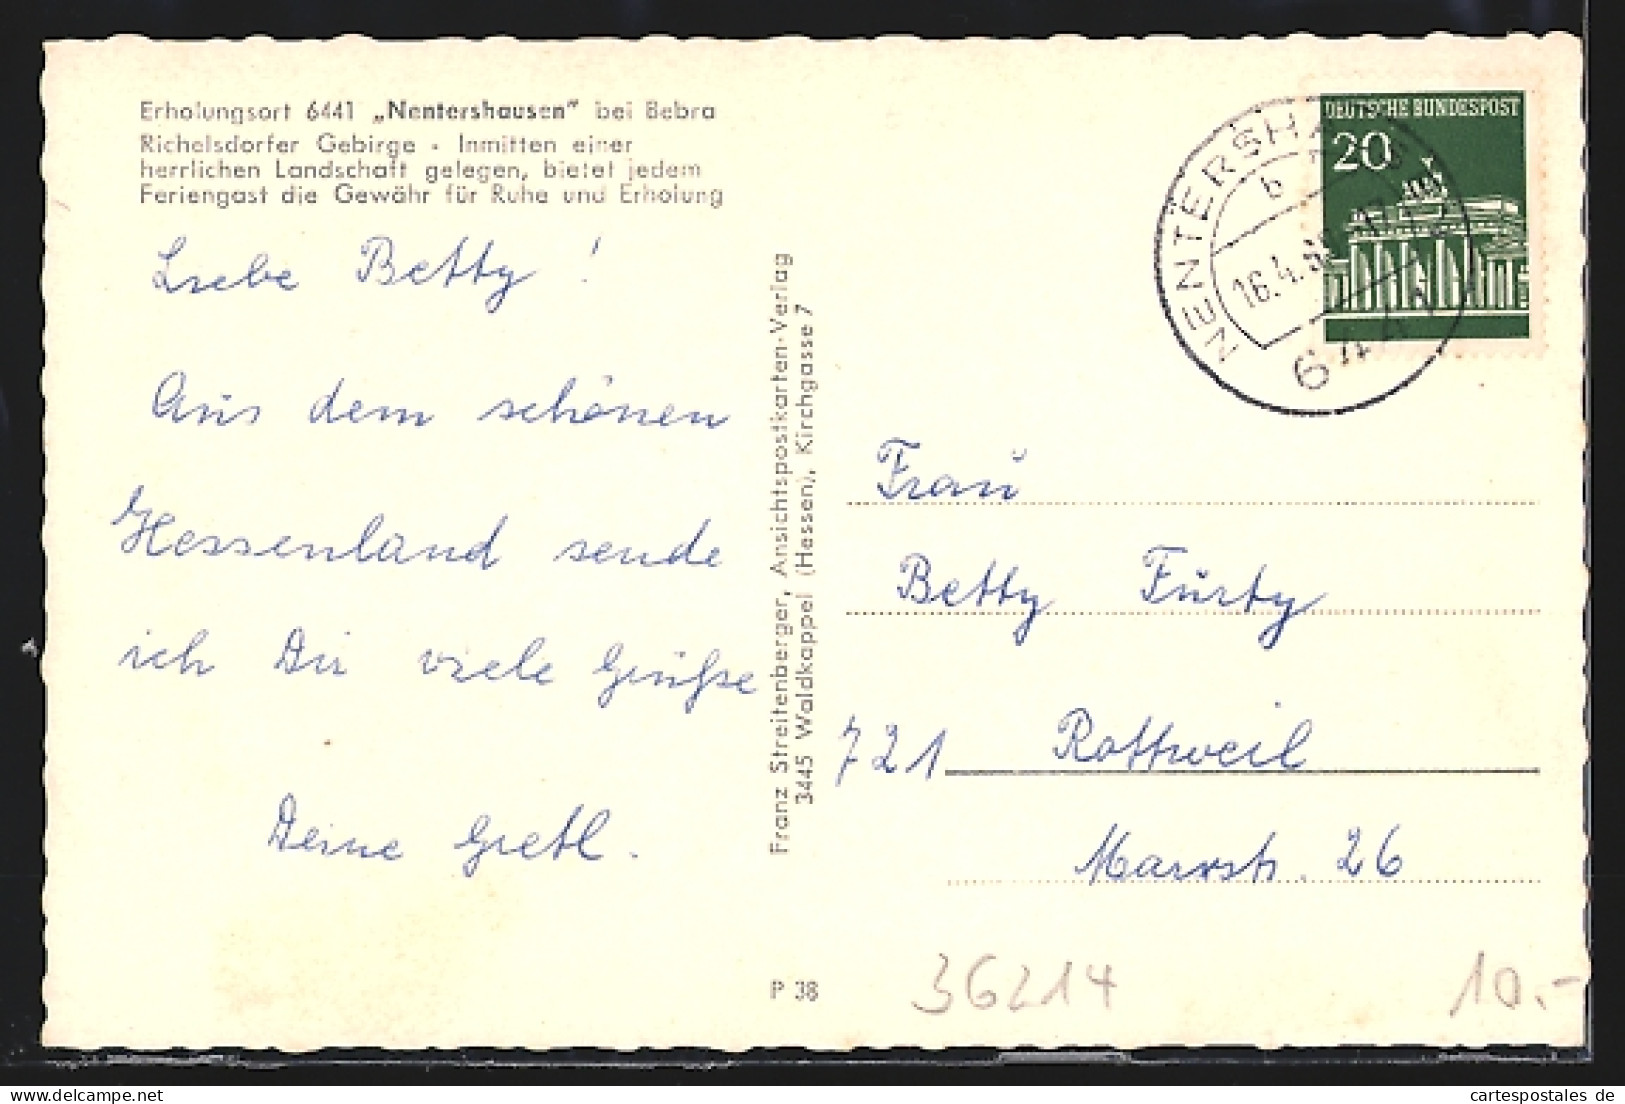 Erholungsort 6441 „Nentershausen" bei Bebra
Richelsdorfer Gebirge - Inmitten einer
herrlichen Landschaft gelegen, bietet jedem
Feriengast die Gewähr für Ruhe und Erholung
Liebe Betty !
Aus dem schönen
Hessenland sende
ich Dir viele Grüße
Deine Gretl.
Franz Streitenberger, Ansichtspostkarten-Verlag
3445 Waldkappel (Hessen), Kirchgasse 7
P 38
DEUTSCHE BUNDESPOST
20
b
16.4.
6441
Frau
Betty Fürty
721 Rottweil
26
36214
10.-
cartespostales de
www.delcampe.net